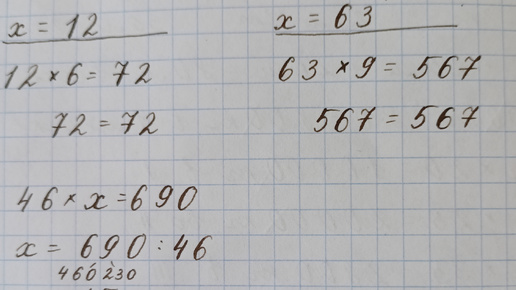 x = 12
12 × 6 = 72
72 = 72
x = 63
63 × 9 = 567
567 = 567
46 × x = 690
x = 690 : 46
460 230